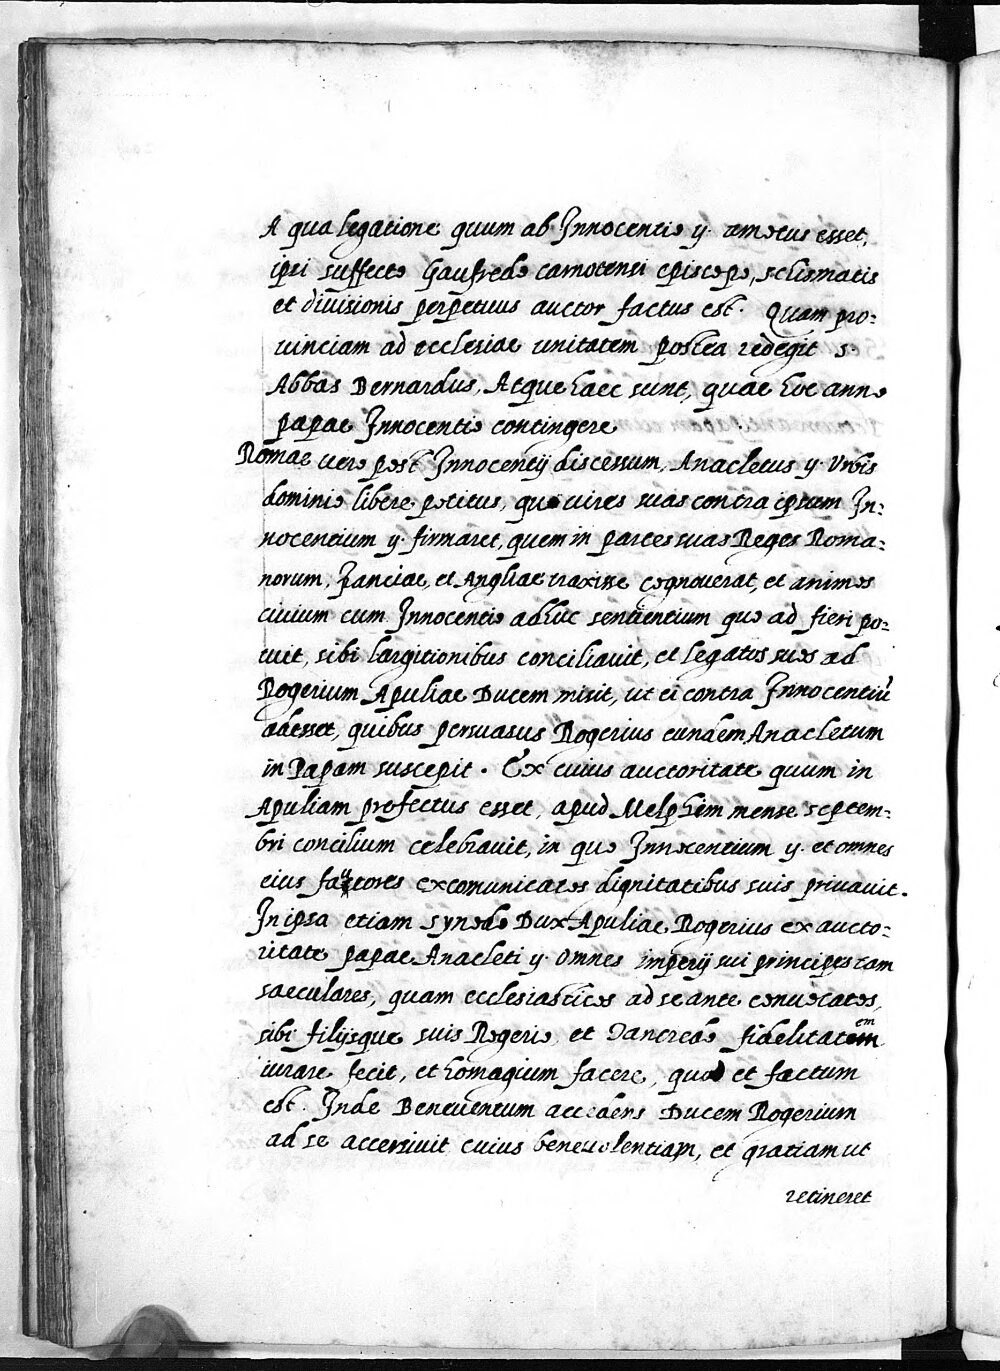 A qua legatione quum ab Innocentio ij. remotus esset,
ipsi suffecto Gaufredo carnotensi episcopo, schismatis
et divisionis perpetuus auctor factus est. Quam pro=
uinciam ad ecclesiae unitatem postea redegit s.
Abbas Bernardus, Atque haec sunt, quae hoc anno
papae Innocentio contingere
Romae uero post Innocentij discessum, Anacletus ij. Vrbis
dominio libere potitus, quo uires suas contra ipsum In=
nocentium ij. firmaret, quem in partes suas Reges Roma=
norum, Franciae, et Angliae traxisse cognouerat, et animos
ciuium cum Innocentio adhuc sentientium quo ad fieri po=
tuit, sibi largitionibus conciliauit, et legatos suos ad
Rogerium Apuliae Ducem misit, ut ei contra Innocentiū
adesset, quibus persuasus Rogerius eundem Anacletum
in Papam suscepit. Ex cuius auctoritate quum in
Apuliam profectus esset, apud Melphim mense septem=
bri concilium celebrauit, in quo Innocentium ij. et omnes
eius fautores excomunicatos dignitatibus suis priuauit.
In ipsa etiam synodo Dux Apuliae Rogerius ex aucto=
ritate papae Anacleti ij. omnes imperij sui principes tam
saeculares, quam ecclesiasticos ad se ante conuocatos,
sibi filijsque suis Rogerio et Tancredo fidelitatem
iurare fecit, et homagium facere, quod et factum
est. Inde Beneuentum accedens Ducem Rogerium
ad se accersiuit cuius beneuolentiam, et gratiam ut
retineret